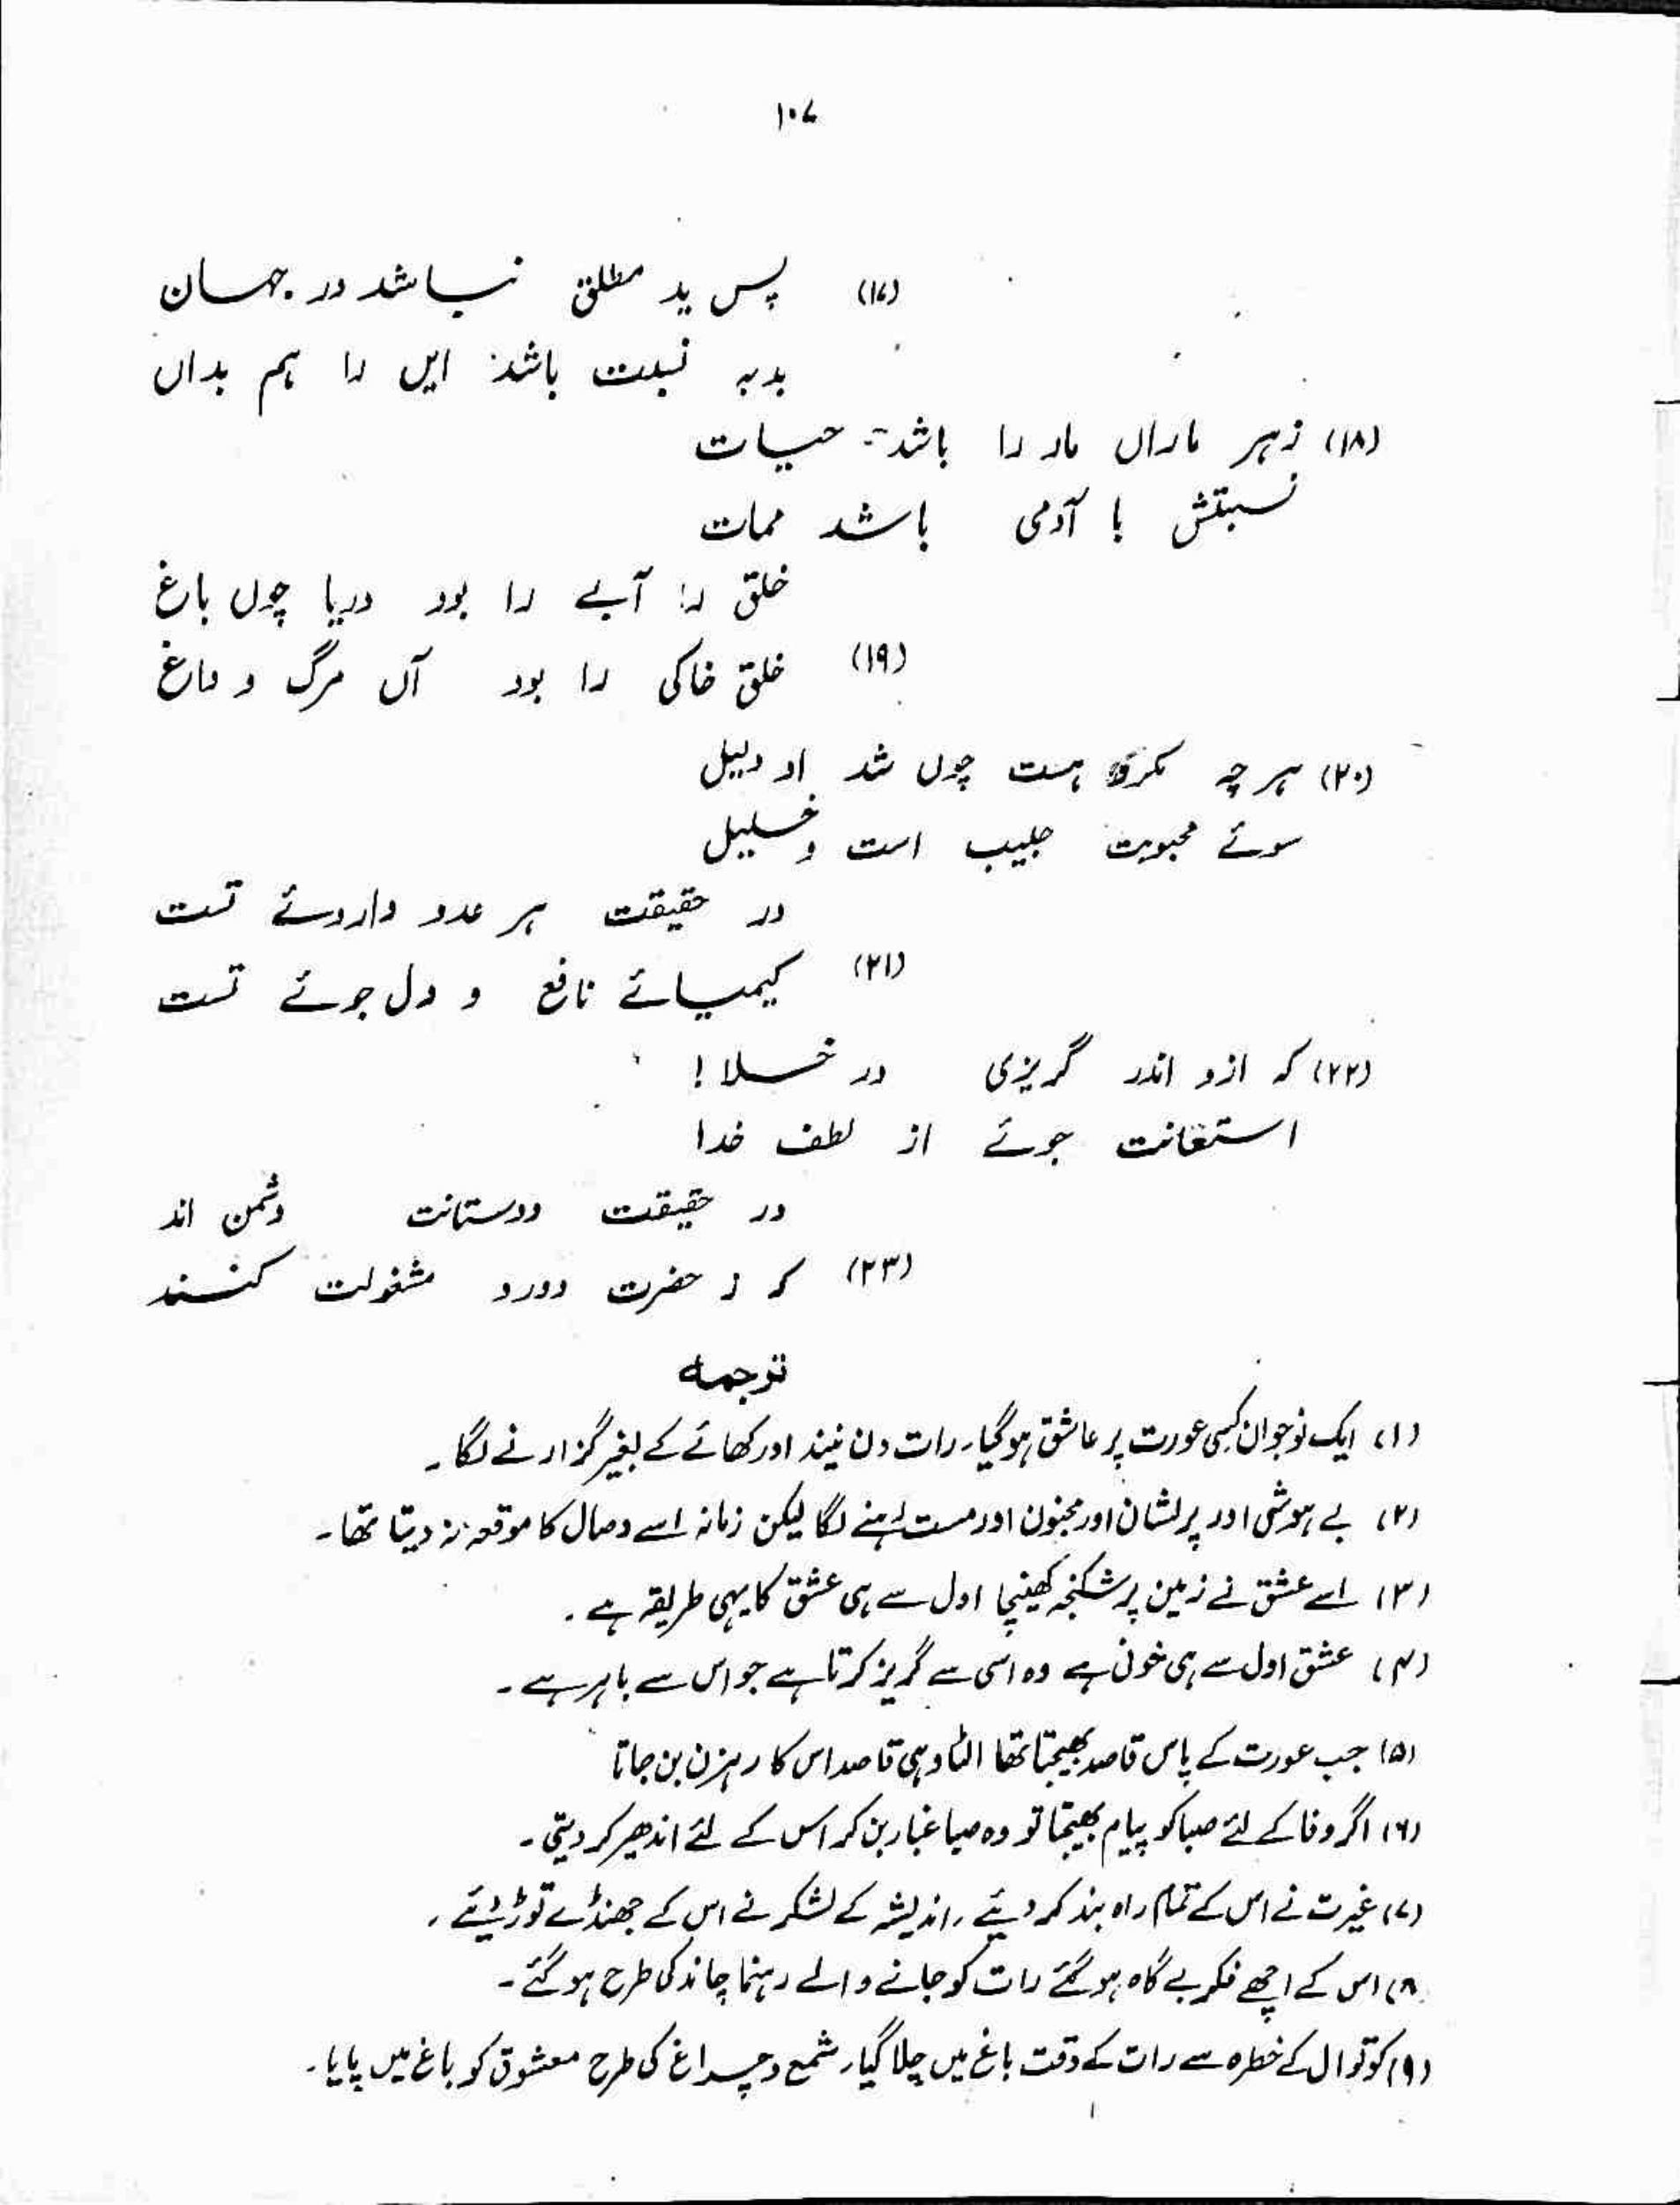 ۱۰۷
(۱۷) پس بد مطلق نباشد در جہان
بدبہ نسبت باشد ایں را ہم بداں
(۱۸) زہر ماراں مار را باشد حیات
نسبتش با آدمی باشد ممات
خلق را آبے را بود دریا چوں باغ
(۱۹) خلق خاکی را بود آں مرگ و داغ
(۲۰) ہرچہ مکروہ ہست چوں شد او دلیل
سوئے محبوبت حبیب است و خلیل
در حقیقت ہر عدو داروئے تست
(۲۱) کیمیائے نافع و دل جوئے تست
(۲۲) کہ ازو اندر گریزی در خلا!
استعانت جوئے از لطف خدا
در حقیقت دوستانت دشمن اند
(۲۳) کہ ز حضرت دورو مشغولت کنند
ترجمہ
(۱) ایک نوجوان کسی عورت پر عاشق ہوگیا۔ رات دن نیند اور کھائے کے بغیر گزارنے لگا۔
(۲) بے ہوشی اور پرلشان اور مجنون اور مست رہنے لگا لیکن زمانہ اسے وصال کا موقعہ نہ دیتا تھا۔
(۳) اسے عشق نے زمین پر شکنجہ کھینچا اول سے ہی عشق کا یہی طریقہ ہے۔
(۴) عشق اول سے ہی خونی ہے وہ اسی سے گریز کرتا ہے جو اس سے باہر ہے۔
(۵) جب عورت کے پاس قاصد بھیجتا تھا الٹا وہی قاصد اس کا رہزن بن جاتا
(۶) اگر وفا کے لئے صبا کو پیام بھیجتا تو وہ صبا غبار بن کر اس کے لئے اندھیر کر دیتی۔
(۷) غیرت نے اس کے تمام راہ بند کر دیئے۔ اندیشہ کے لشکر نے اس کے جھنڈے توڑ دیئے۔
(۸) اس کے اچھے فکر بے گاہ ہو گئے رات کو جانے والے رہنما چاند کی طرح ہو گئے۔
(۹) کوتوال کے خطرہ سے رات کے وقت باغ میں چلا گیا۔ شمع و چراغ کی طرح معشوق کو باغ میں پایا۔